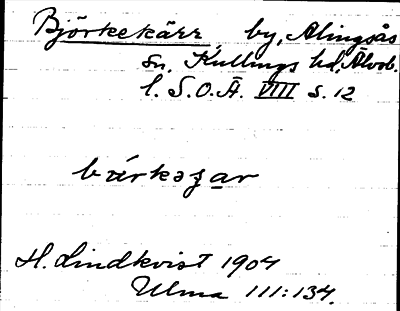 Björkekärr, by, Alingsås
sn, Kullings hd, Älvsb.
l. S.O.Ä. VIII s. 12
H. Lindkvist 1904
Ulma 111:134.